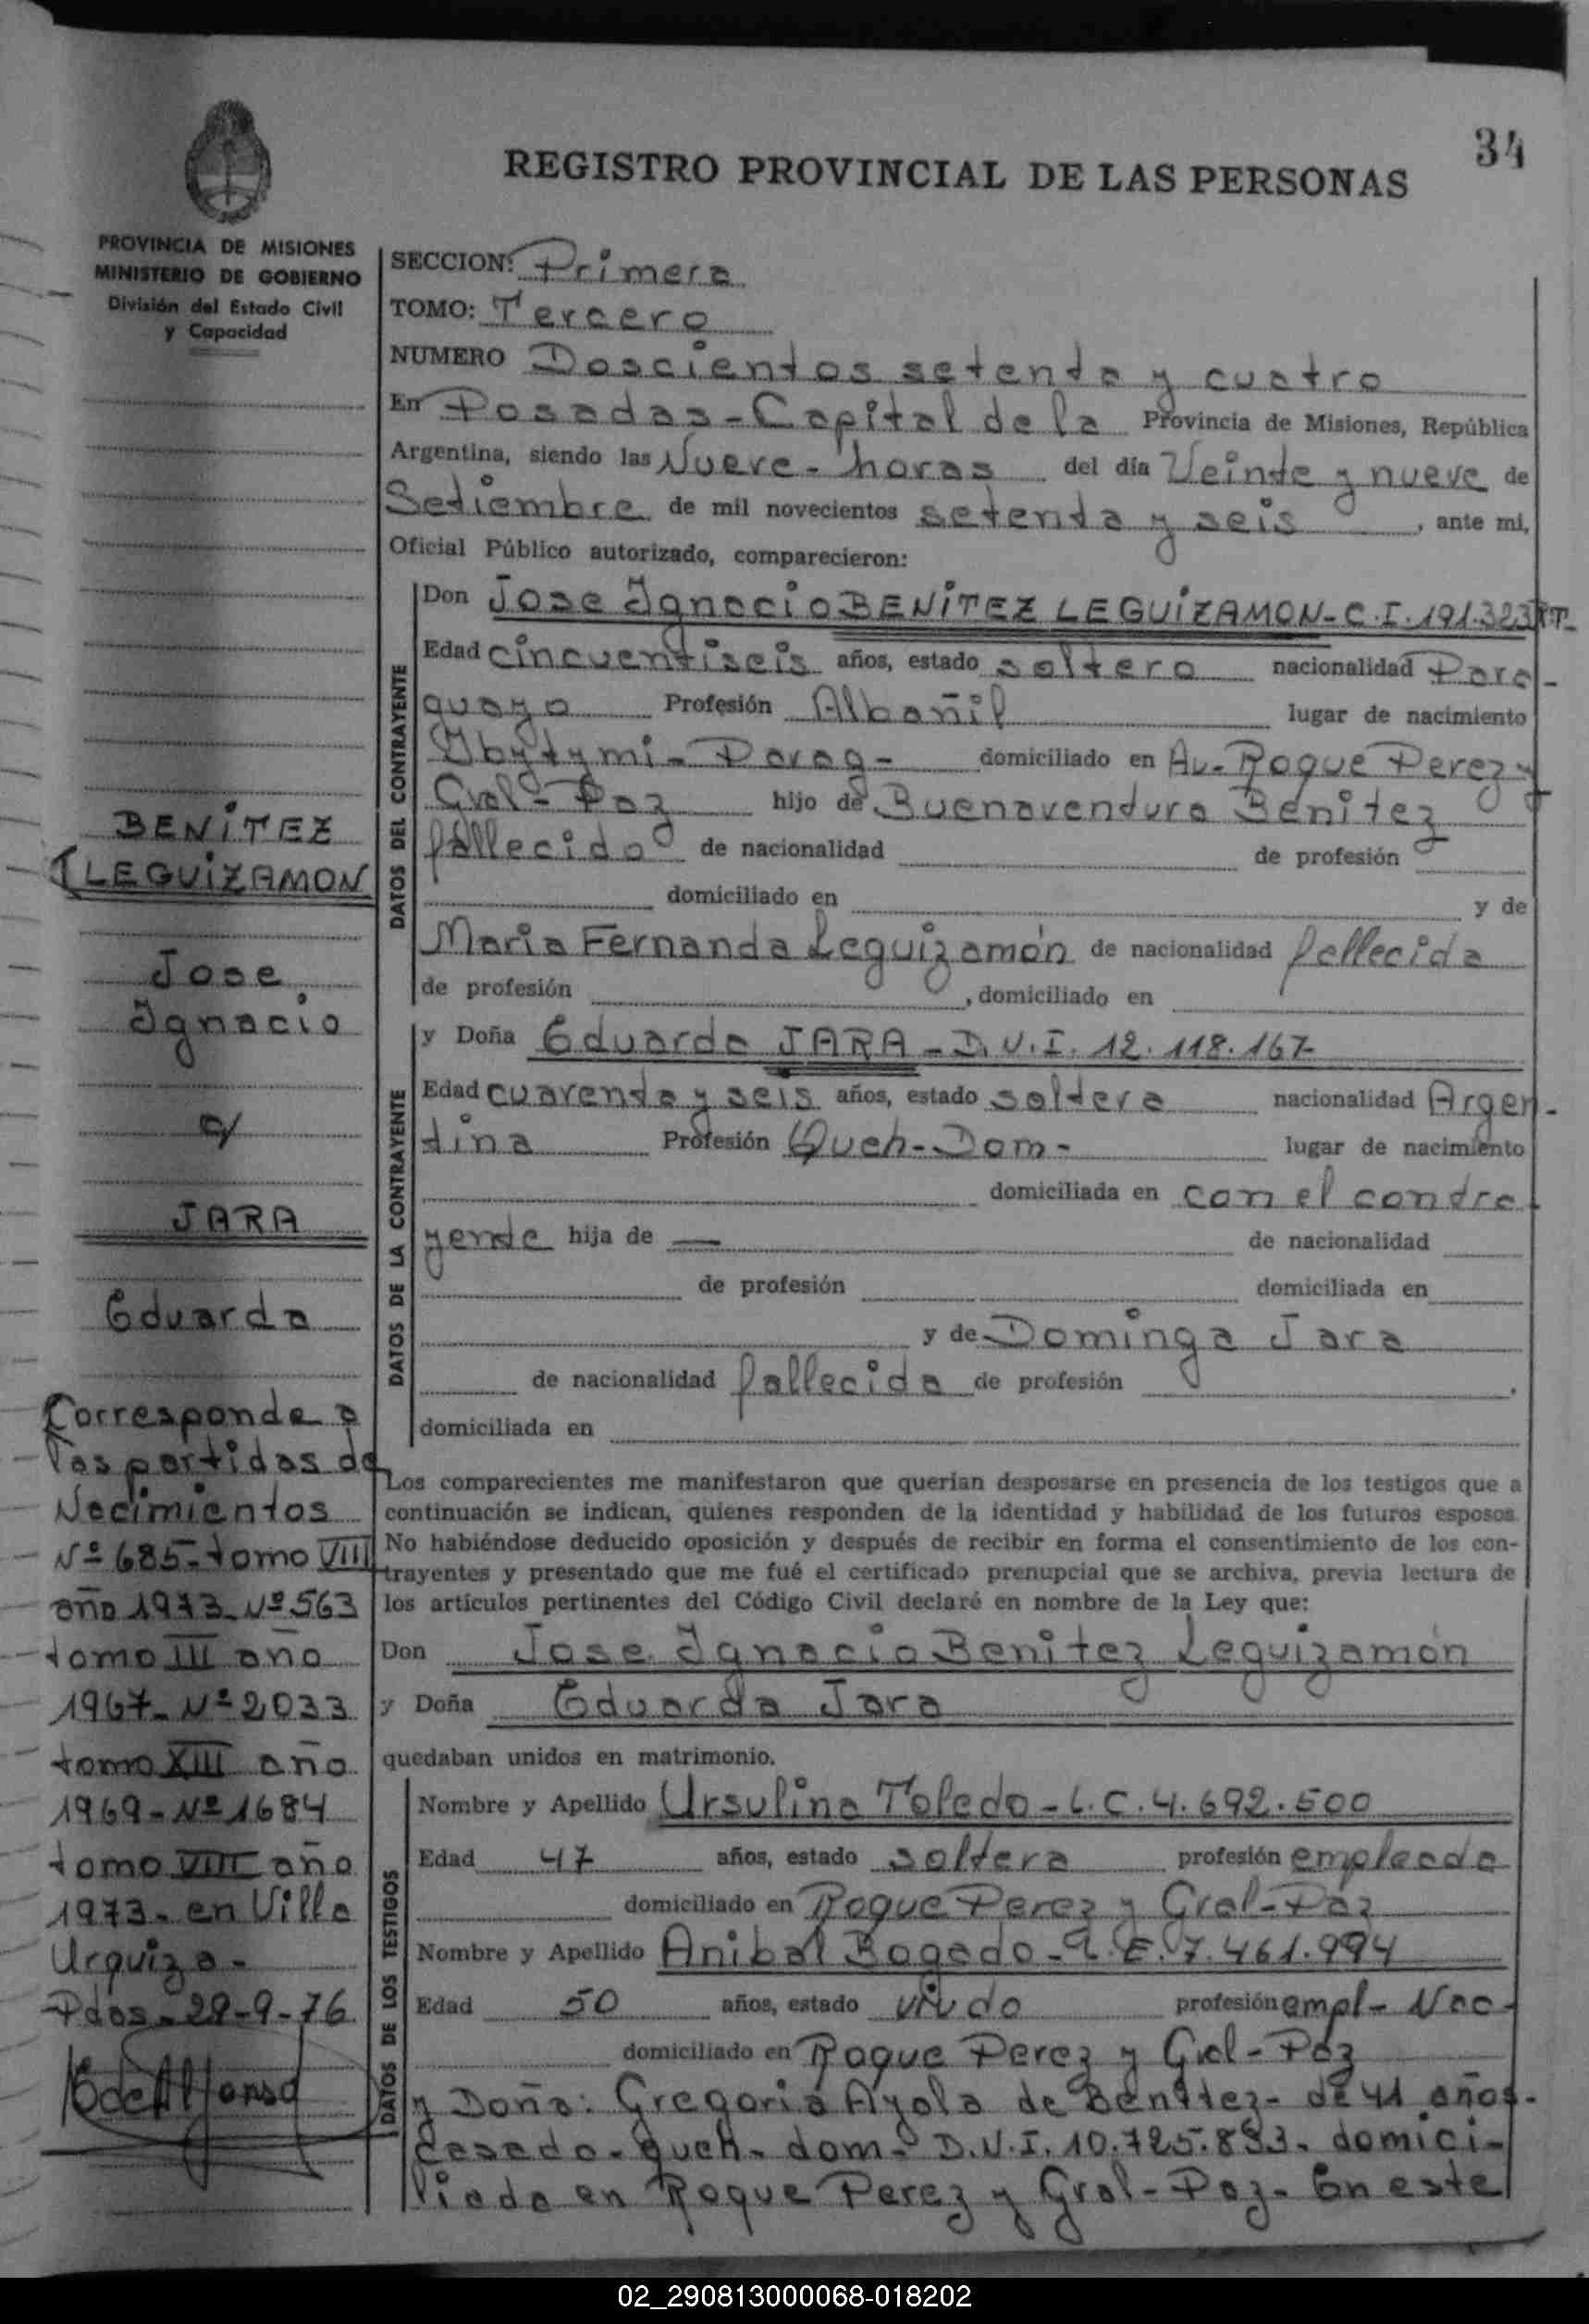 34
REGISTRO PROVINCIAL DE LAS PERSONAS
PROVINCIA DE MISIONES
MINISTERIO DE GOBIERNO
División del Estado Civil
y Capacidad
BENITEZ
LEGUIZAMON
Jose
Ignacio
c/
JARA
Eduarda
Corresponde a
las partidas de
Nacimientos
Nº 685- tomo VIII
año 1973 Nº 563
tomo III año
1967- Nº 2,033
tomo XIII año
1969- Nº 1684
tomo VIII año
1973- en Villa
Urquiza-
Pdas- 29-9-76
SECCION: Primera
TOMO: Tercero
NUMERO Doscientos setenta y cuatro
En Posadas - Capital de la Provincia de Misiones, República
Argentina, siendo las Nueve - horas del día Veinte y nueve de
Setiembre de mil novecientos setenta y seis, ante mi,
Oficial Público autorizado, comparecieron:
DATOS DEL CONTRAYENTE
Don Jose Ignacio BENITEZ LEGUIZAMON - C.I. 191.323
Edad cincuentiseis años, estado soltero nacionalidad Para-
guayo Profesión Albañil lugar de nacimiento
Ybytymi - Parag- domiciliado en Av- Roque Perez y
Gral- Paz hijo de Buenaventura Benitez
fallecido de nacionalidad de profesión
domiciliado en y de
Maria Fernanda Leguizamón de nacionalidad fallecida
de profesión , domiciliado en
DATOS DE LA CONTRAYENTE
y Doña Eduarda JARA - D.N.I. 12.118.167
Edad cuarenta y seis años, estado soltera nacionalidad Argen-
tina Profesión Queh- Dom- lugar de nacimiento
domiciliada en con el contra
yente hija de — de nacionalidad
de profesión domiciliada en
y de Dominga Jara
de nacionalidad fallecida de profesión
domiciliada en
Los comparecientes me manifestaron que querían desposarse en presencia de los testigos que a
continuación se indican, quienes responden de la identidad y habilidad de los futuros esposos.
No habiéndose deducido oposición y después de recibir en forma el consentimiento de los con-
trayentes y presentado que me fué el certificado prenupcial que se archiva, previa lectura de
los artículos pertinentes del Código Civil declaré en nombre de la Ley que:
Don Jose Ignacio Benitez Leguizamón
y Doña Eduarda Jara
quedaban unidos en matrimonio.
DATOS DE LOS TESTIGOS
Nombre y Apellido Ursulina Toledo - L.C. 4.692.500
Edad 47 años, estado soltera profesión empleada
domiciliado en Roque Perez y Gral- Paz
Nombre y Apellido Anibal Bogado - L.E. 7.461.994
Edad 50 años, estado viudo profesión empl- Nac-
domiciliado en Roque Perez y Gral- Paz
y Doña: Gregoria Ayala de Benitez- de 41 años-
casada- queh- dom- D.N.I. 10.725.893- domici-
liada en Roque Perez y Gral- Paz- En este
02_290813000068-018202